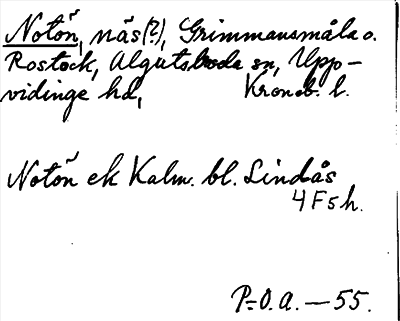 Notön, näs(?), Grimmansmåla o.
Rostock, Algutsboda sn, Upp-
vidinge hd, Kronob. l.
Notön ek Kalm. bl. Lindås
4F5h.
P-O.A. — 55.